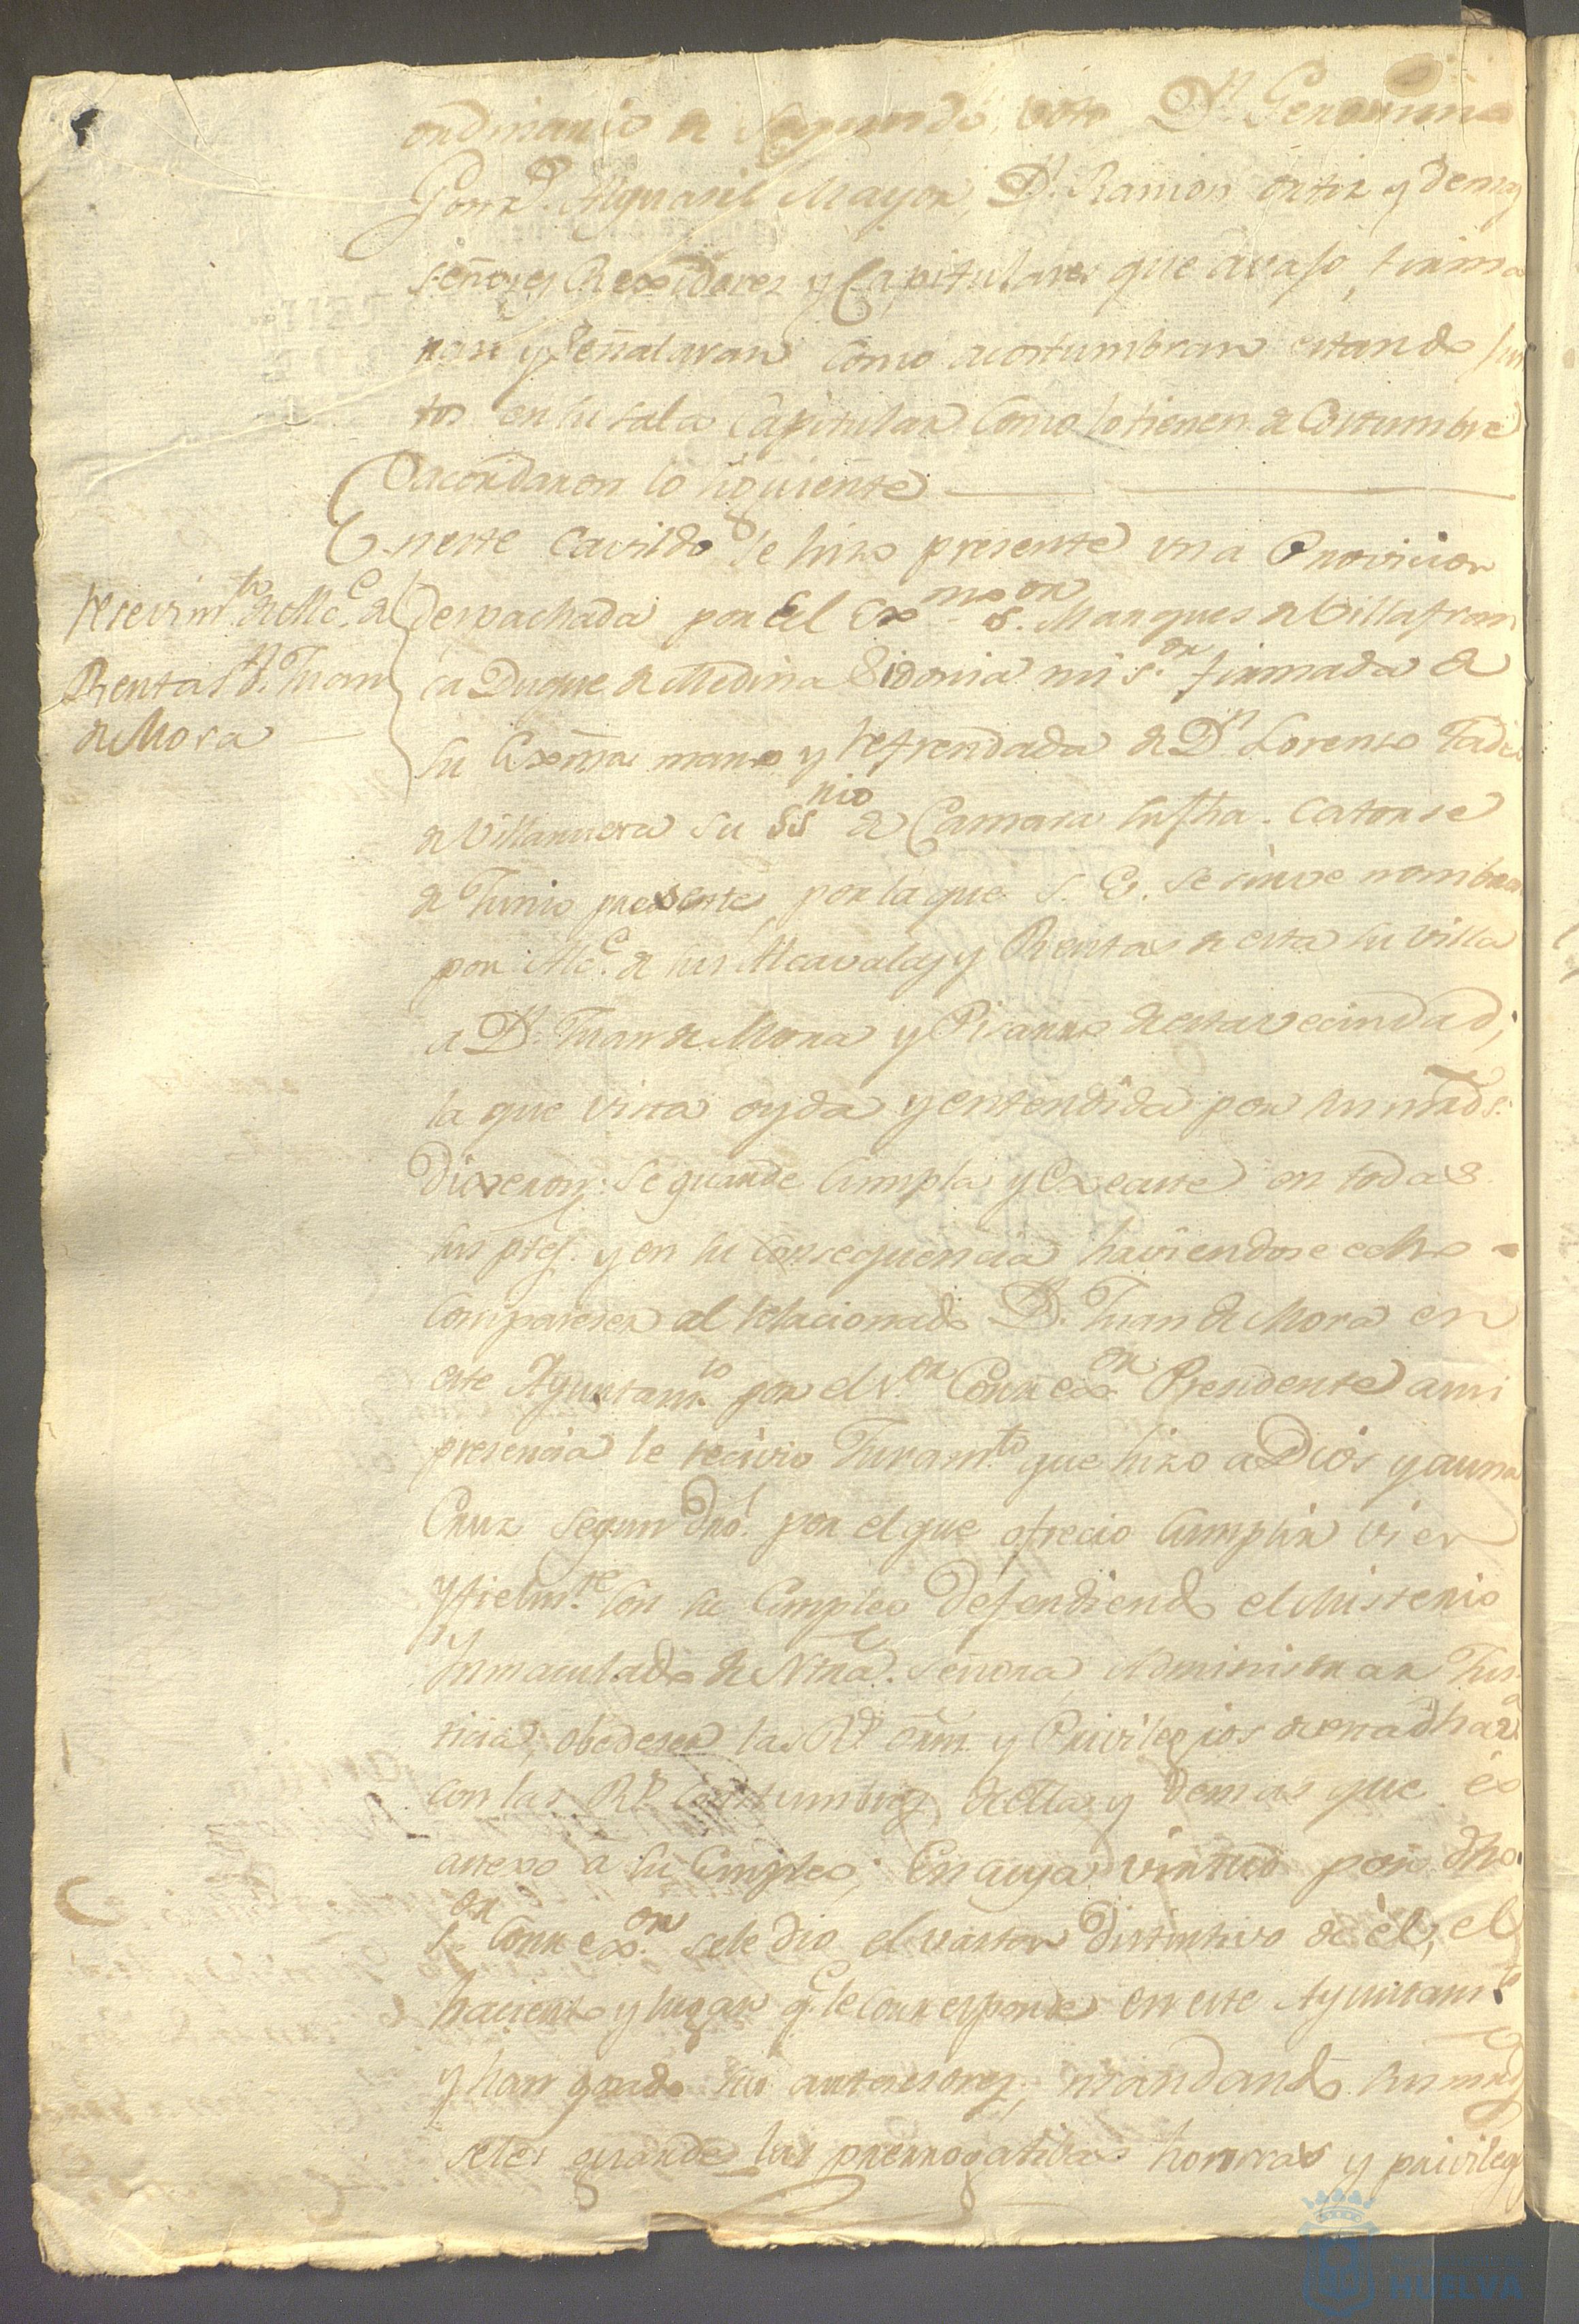 ordinario de segundo voto Dn. Geronimo
Gonz. Alguasil Mayor, Dn. Ramon Ortiz y demas
señores Rexidores y Capitulares que avajo firma
ran y señalaran como acostumbran estando jun
tos en su sala Capitular como lo tienen de Costumbre
acordaron lo siguiente
Eneste Cavildo se hizo presente una Provicion
Resevimto. de Alce. de
Rentas Dn. Juan
de Mora
despachada por el Exmo. sor. Marques de Villafran
ca Duque de Medina Sidonia mi sor. firmada de
su Exma mano y refrendada de Dn Lorenso Tadeo
de Villanueva su ssrio de Camara su fha. Catorse
de Junio presente, por la que S. E. se sirve nombrar
por Alce. de sus Alcavalas y Rentas de esta su villa
a Dn. Juan de Mora y Pisarro de esta vecindad;
la que vista oyda y entendida por sus mrds.
Dixeron: se guarde Cumpla y Execute en todas
sus ptes. y en su Consequencia haviendose echo
Compareser al relacionado Dn. Juan de Mora en
este Ayuntamto. por el sor. Correxor. Precidente ami
presencia le recivio Juramto. que hizo a Dios y auna
Cruz segun dro. por el que ofrecio Cumplir vien
y fielmte. con su Empleo defendiendo el Misterio
Inmaculado de Ntra. Señora, Administrar Jus
ticia, obedeser las Rs. orns. y Privilegios de esta dha va
con las Rs. Costumbres de ella y demas que es
anexo a su Empleo; En cuya virtud por dho.
sor Correxor. sele dio el vaston distintivo de èl, el
haciento y lugar qe. le Corresponde en este Ayuntamto.
y han gosado sus antesesores, mandando sus mrds
seles guarde las prerrogativas honrras y privileg
HUELVA